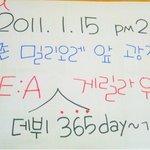 2011.1.15 pm2
존 밀리오레 앞 광
E:A 게릴라
데뷔 365day~